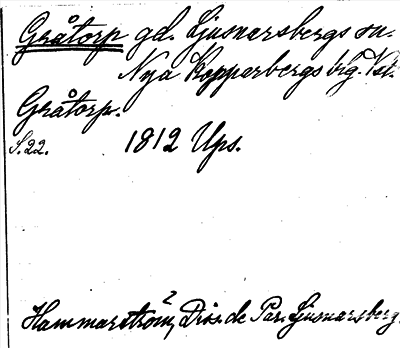 Gråtorp gd. Ljusnarsbergs sn.
Nya Kopparbergs bsg. Vstl.
Gråtorp.
S.22. 1812 Ups.
Hammarström, Diss. de Par. Ljusnarsberg.